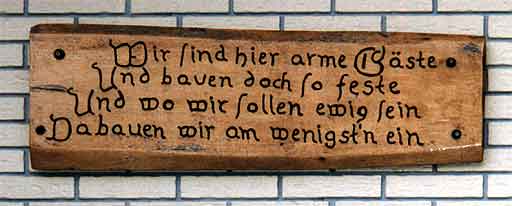 Wir sind hier arme Gäste
Und bauen doch so feste
Und wo wir sollen ewig sein
Da bauen wir am wenigst'n ein